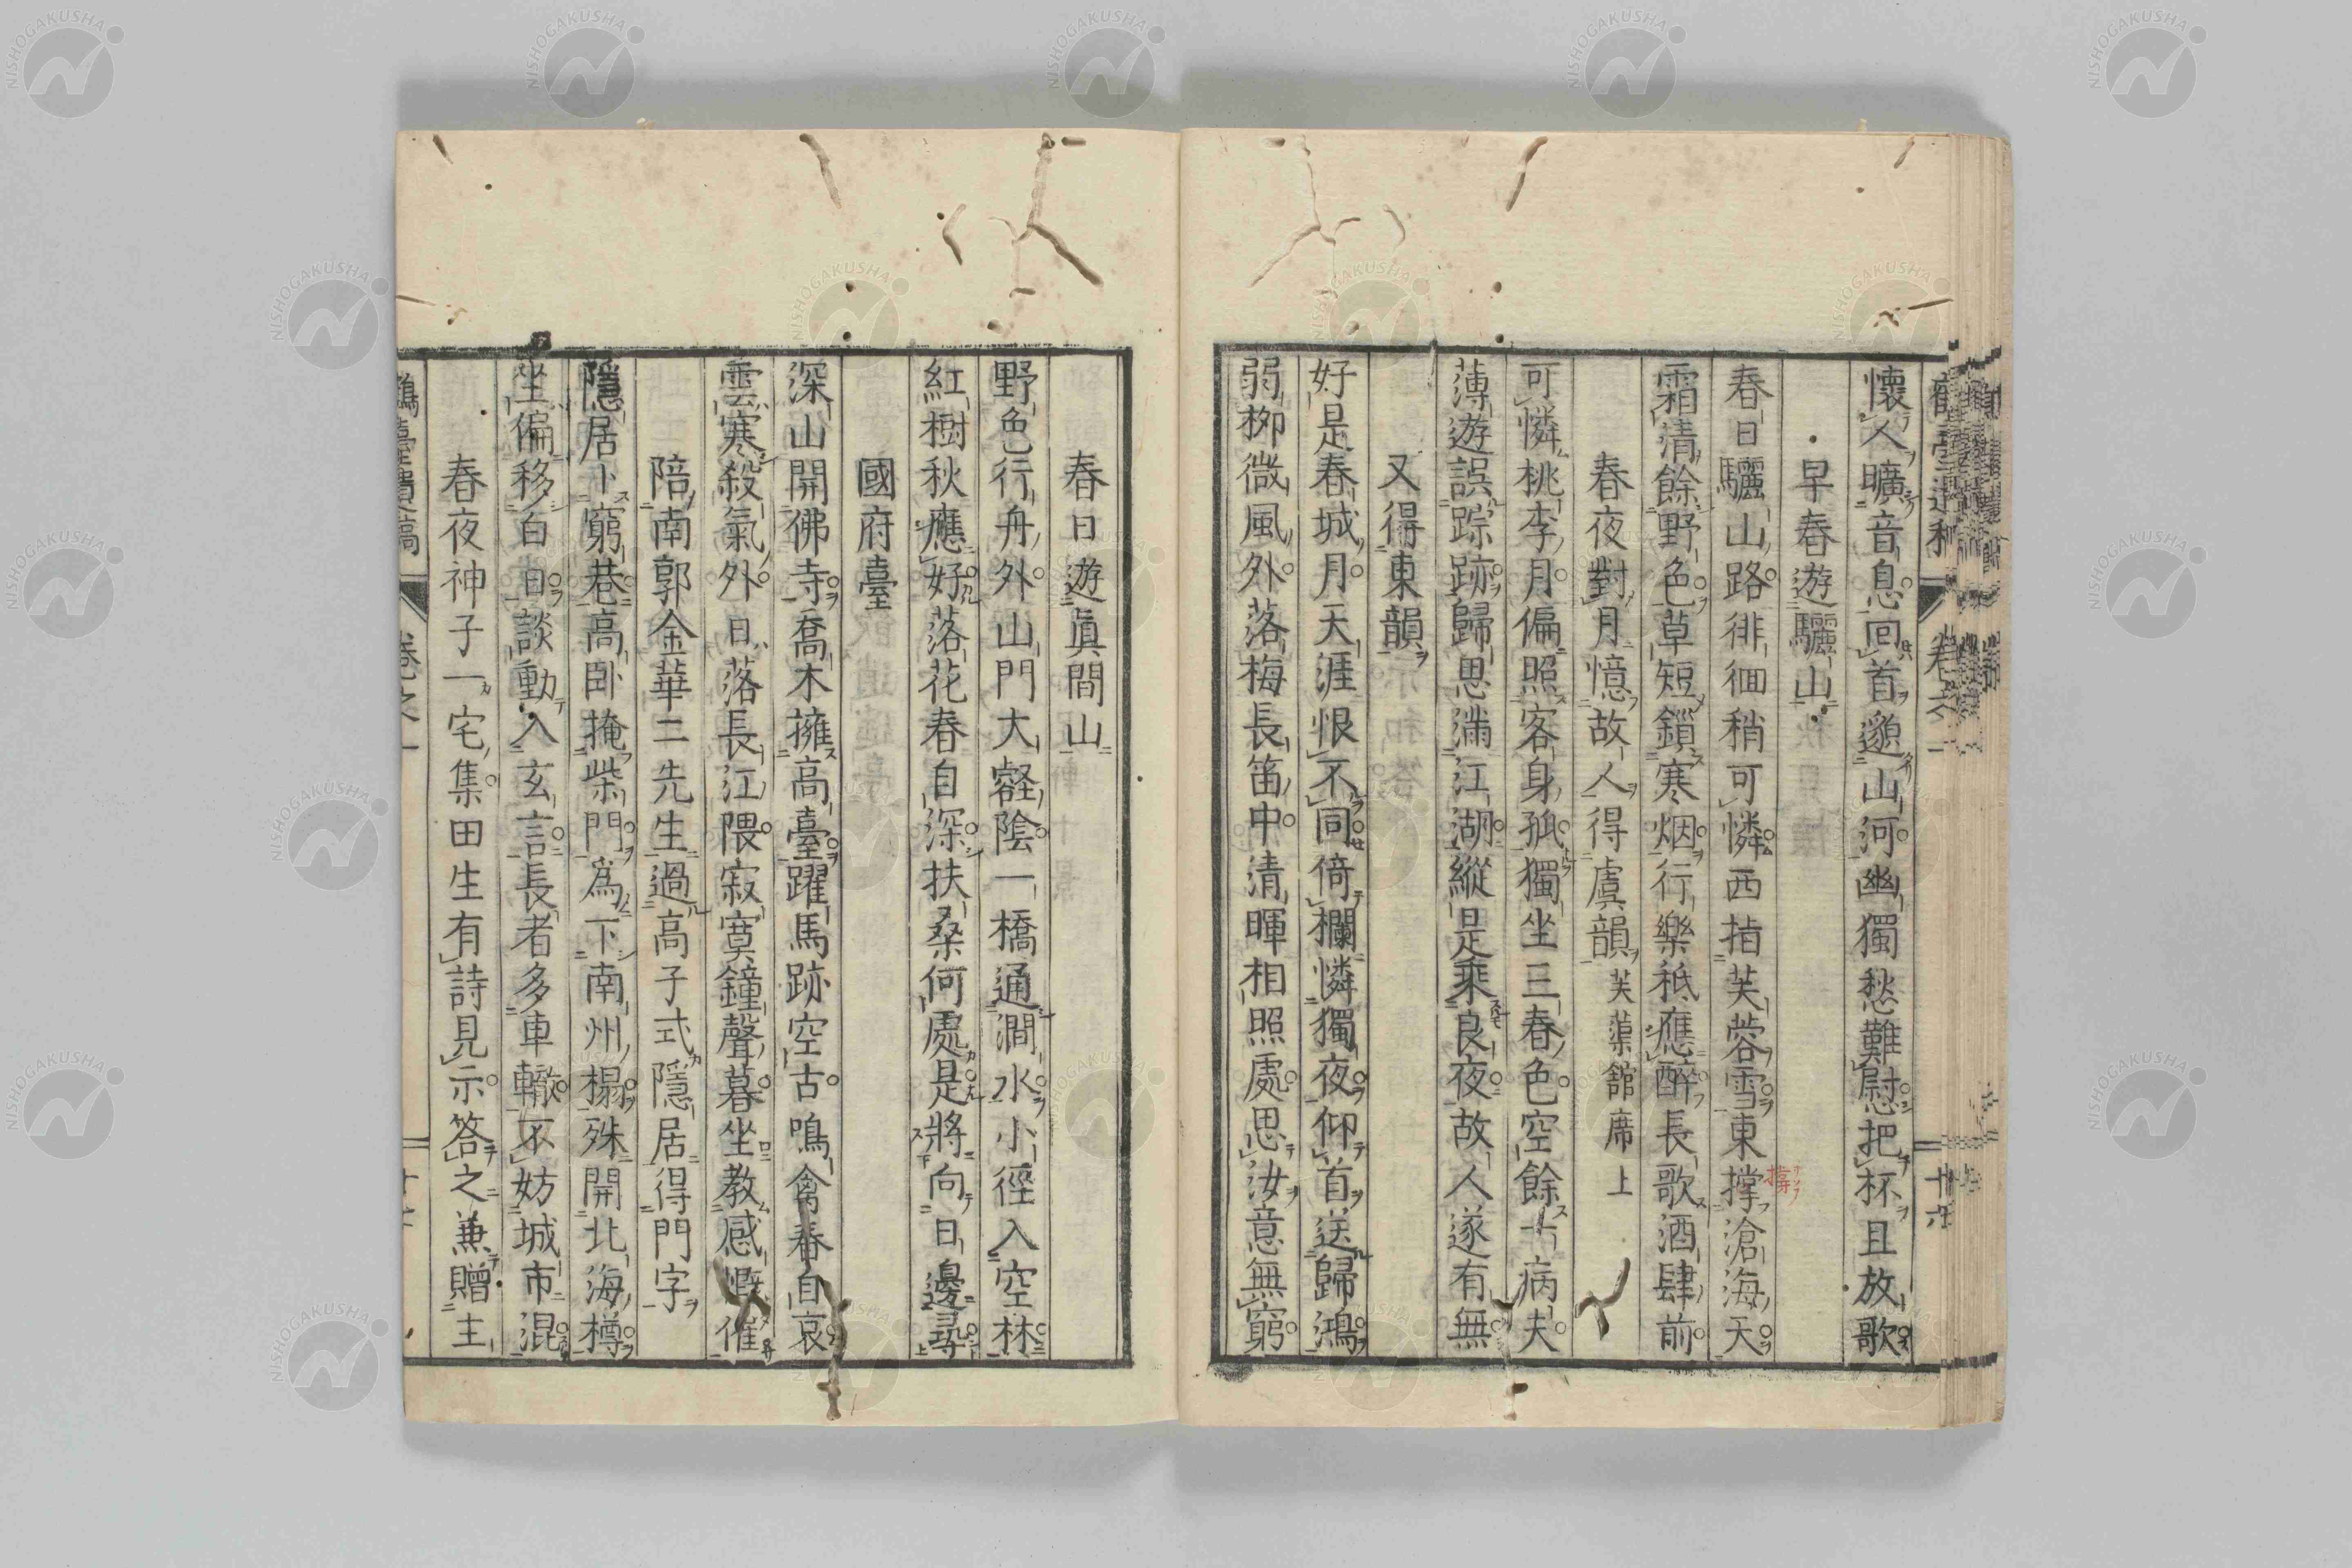 懷人曠音息回首邈山河幽獨愁難慰把杯且放歌
早春遊驪山
春日驪山路徘徊稍可憐西指芙蓉雪東撑滄海天
霜清餘野色草短鎖寒烟行樂秪應醉長歌酒肆前
春夜對月憶故人得虞韻芙蕖舘席上
可憐桃李月偏照客身孤獨坐三春色空餘一病夫
薄遊誤踪跡歸思滿江湖縱是乘良夜故人遂有無
又得東韻
好是春城月天涯恨不同倚欄憐獨夜仰首送歸鴻
弱柳微風外落梅長笛中清暉相照處思汝意無窮
春日遊眞間山
野色行舟外山門大壑陰一橋通澗水小徑入空林
紅樹秋應好落花春自深扶桑何處是將向日邊尋
國府臺
深山開佛寺喬木擁高臺躍馬跡空古鳴禽春自哀
雲寒殺氣外日落長江隈寂寞鐘聲暮坐教感慨催
陪南郭金華二先生過高子式隱居得門字
隱居卜窮巷高臥掩柴門爲下南州榻殊開北海樽
坐偏移白日談動入玄言長者多車轍不妨城市混
春夜神子一宅集田生有詩見示答之兼贈主
鶴臺遺稿 卷之一
NISHOGAKUSHA